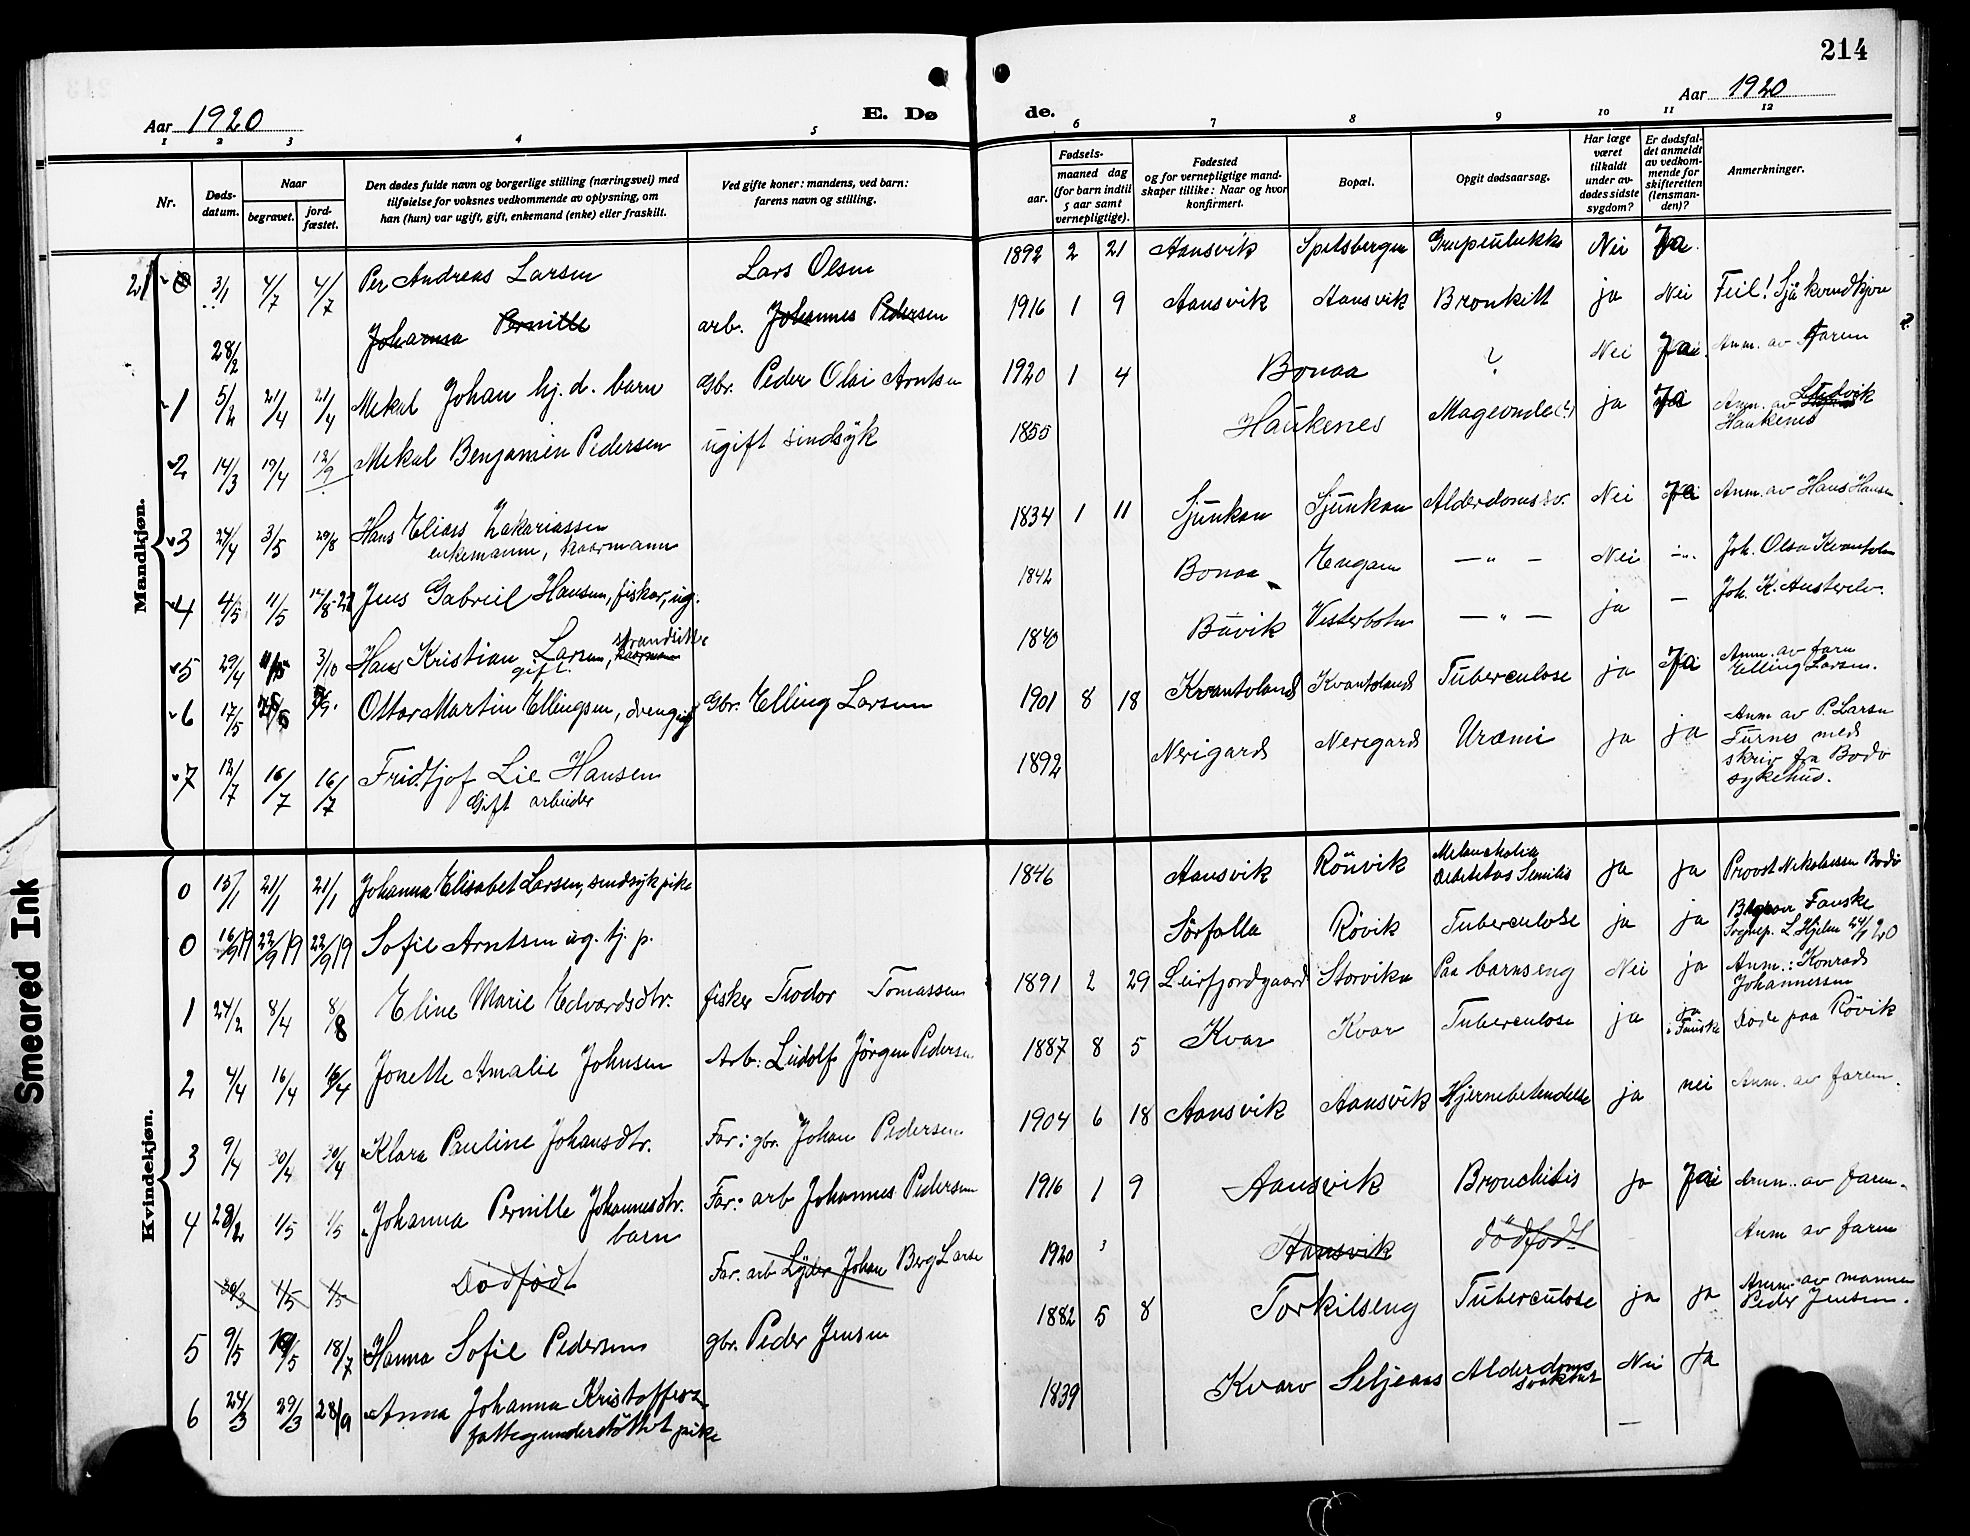 214
Aar 1920
E. Dø
de.
Aar 1920
1 2 3 4 5 6 7 8 9 10 11 12
Nr.
Døds-
datum.
Naar
begravet.
jord-
fæstet.
Den dødes fulde navn og borgerlige stilling (næringsvei) med
tilføielse for voksnes vedkommende av oplysning, om
han (hun) var ugift, gift, enkemand (enke) eller fraskilt.
Ved gifte koner: mandens, ved barn:
farens navn og stilling.
Fødsels-
aar.
maaned dag
(for barn indtil
5 aar samt
vernepligtige).
Fødested
og for vernepligtige mand-
skaper tillike: Naar og hvor
konfirmert.
Bopæl.
Opgit dødsaarsag.
Har læge
været
tilkaldt
under av-
dødes sidste
sygdom?
Er dødsfal-
det anmeldt
av vedkom-
mende for
skifteretten
(lensman-
den)?
Anmerkninger.
Mandkjøn.
21 0 3/1 4/7 4/7 Per Andreas Larsen Lars Olsen 1892 2 21 Aansvik Spitsbergen Grupeulukke Nei Ja
28/2 Johanna Pernille arb. Johannes Pedersen 1916 1 9 Aansvik Aansvik Bronkitt ja Nei Feil! Sjå kvendkjøn
1 5/2 21/4 21/4 Mekal Johan hj. d. barn Gbr. Peder Olai Arntsen 1920 1 4 Bonaa ? Nei Ja Anm. av Faren
2 14/3 19/4 12/9 Mekal Benjamin Pedersen ugift sindsyk 1855 Haukenes Mageonde (?) ja Ja Anm. av Ludvik
Haukenes
3 24/4 3/5 29/8 Hans Eliass Zakariassen
enkemann, kaarmann 1834 1 11 Sjunkan Sjunkan Alderdomssv. Nei Ja Anm. av Hans Hansen
4 4/5 11/5 Jens Gabriel Hansen, fisker, ug. 1842 Bonaa Engan — " — Nei Joh. Olsa Kvantoland
5 29/4 3/10 Hans Kristian Larsen, strandsitter
gift. 1840 Buvik Vesterbotn — " — ja — Joh. K. Austerelv.
6 17/5 Ottar Martin Ellingsen, dreng ug Gbr. Elling Larsen 1901 8 18 Kvantoland Kvantoland Tuberculose ja Ja Anm. av faren
Elling Larsen.
7 12/7 16/7 16/7 Fridtjof Lie Hansen
Gift arbeider 1892 Nerigard Nerigard Uræmi ja ja Anm av P. Larsen
Furnes med
skriv fra Bodø
sykehus.
Kvindekjøn.
0 15/1 21/1 21/1 Johanna Elisabet Larsen, sindsyk pike 1846 Aansvik Rønvik Melancholia
Debilitas Senilis ja ja Provst Nikolaissen Bodø
0 16/9 19 22/9 19 22/9 19 Sofie Arntsen ug. tj. p. Sørfolla Røvik Tuberculose ja ja Fauske
Sognep. L Hjelm 24/1 20
1 24/2 8/4 8/8 Eline Marie Edvardsdtr. fisker Teodor Tomassen 1891 2 29 Leirfjordgaard Storvika Paa barnseng Nei ja Anm.: Konrad
Johannessen
2 4/4 16/4 16/4 Jonette Amalie Johnsen Arb: Ludolf Jørgen Pedersen 1887 8 5 Kvar Kvar Tuberculose ja ja
i Fauske Døde paa Røvik
3 9/4 30/4 30/4 Klara Pauline Johansdtr. Far: gbr. Johan Pedersen 1904 6 18 Aansvik Aansvik Hjernebetendelse ja nei Anm. av faren.
4 28/2 1/5 1/5 Johanna Pernille Johannesdtr.
barn Far: arb Johannes Pedersen 1916 1 9 Aansvik Bronchitis ja Ja Anm. av faren.
30/3 1/5 1/5 Dødfødt Far: arb Lyder Johan Berg Larsen 1920 3 Aansvik dødfødt Anm av faren
5 9/5 18/7 Hanna Sofie Pedersen gbr. Peder Jensen 1882 5 8 Torkilseng Tuberculose ja ja Anm. av mannen
Peder Jensen.
6 24/3 29/3 28/9 Anna Johanna Kristoffers
fattigunderstøttet pike 1839 Kvarv Seljeaas Alderdoms
svakhet Nei ja
—
Smeared Ink